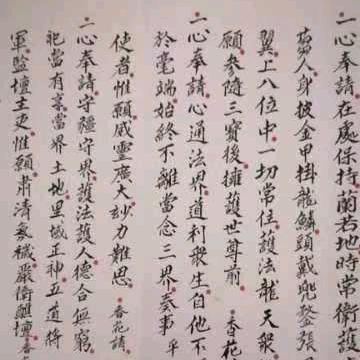 一心奉請在處保持蘭若地時常衛護
人身披金甲掛龍鱗頭戴兜鍪張
翼上八位中一切常住護法龍天衆
願參隨三寶後擁護世尊前 香花
一心奉請心通法界道利衆生自他不
於毫端始終不離當念三界奏事 乎
使者惟願威靈廣大玅力難思 香花請
一心奉請守疆守界護法護人德合無窮
祀當有當界土地里域正神五道將
軍監壇主吏惟願肅清氛穢嚴衛壇 香